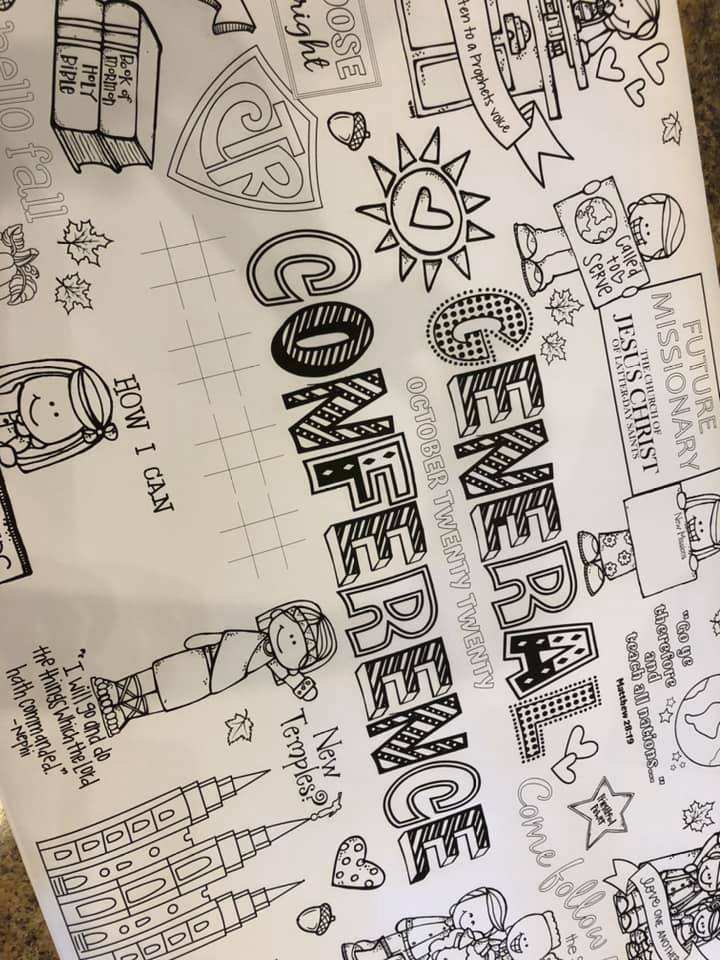 GENERAL
OCTOBER TWENTY TWENTY
CONFERENCE
hello fall
Book of
mormon
HOLY
BIBLE
CTR
right
to a Prophets voice
called
to
serve
FUTURE
MISSIONARY
THE CHURCH OF
JESUS CHRIST
OF LATTER-DAY SAINTS
New Missions
"Go ye
therefore
and
teach all nations..."
Matthew 28:19
HOW I CAN
"I will go and do
the things which the Lord
hath commanded."
-Nephi
New
Temples?
Come follow
the
LOVE ONE ANOTHER